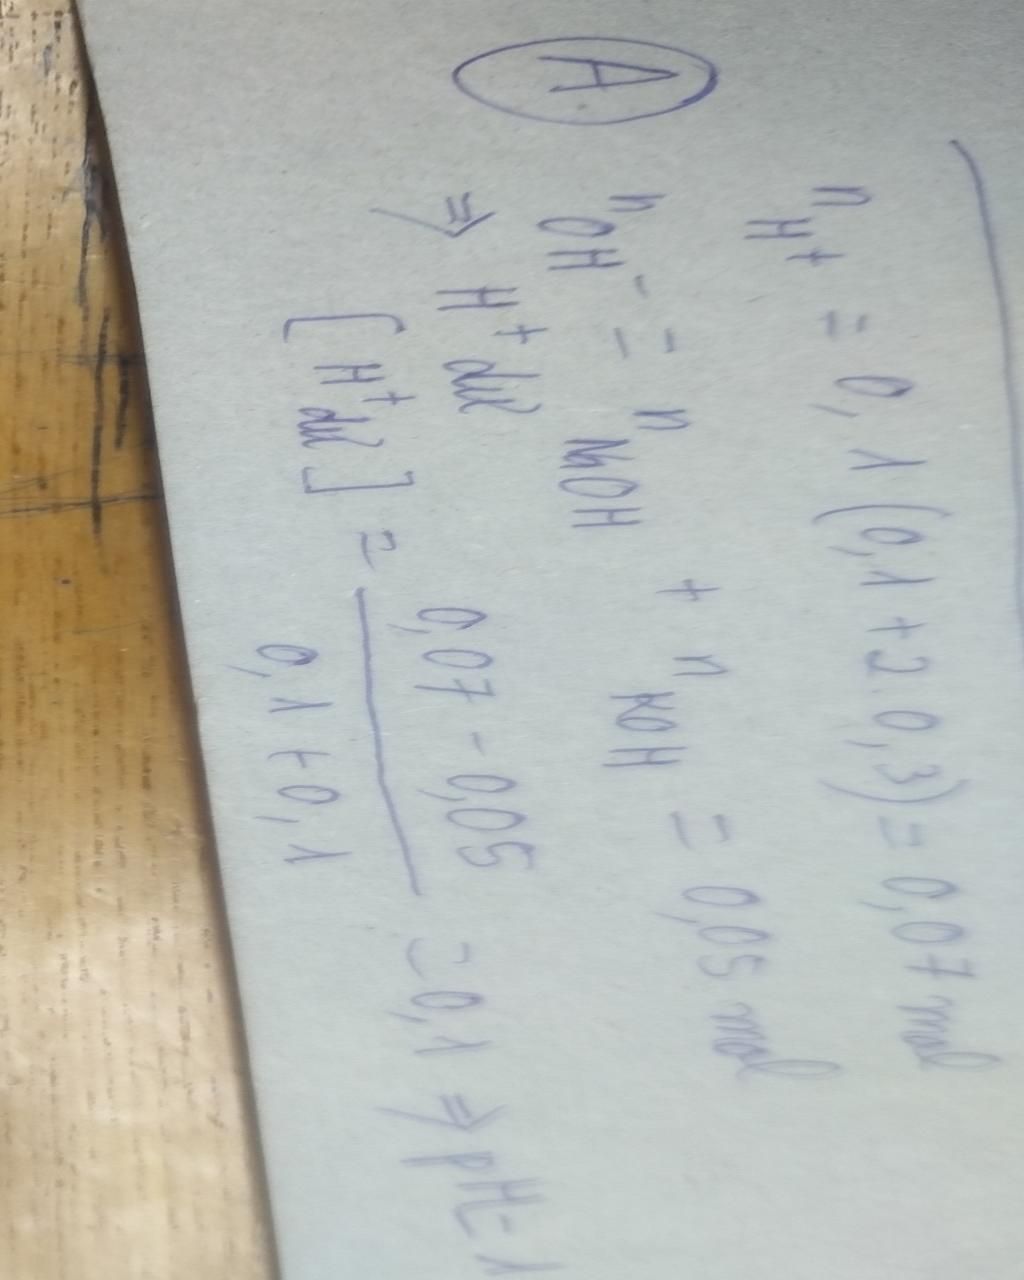 A
n H+ = 0,1(0,1+2.0,3) = 0,07 mol
n OH- = n NaOH + n KOH = 0,05 mol
=> H+ dư
[H+ dư] = 0,07 - 0,05 / 0,1 + 0,1 = 0,1 => pH = 1